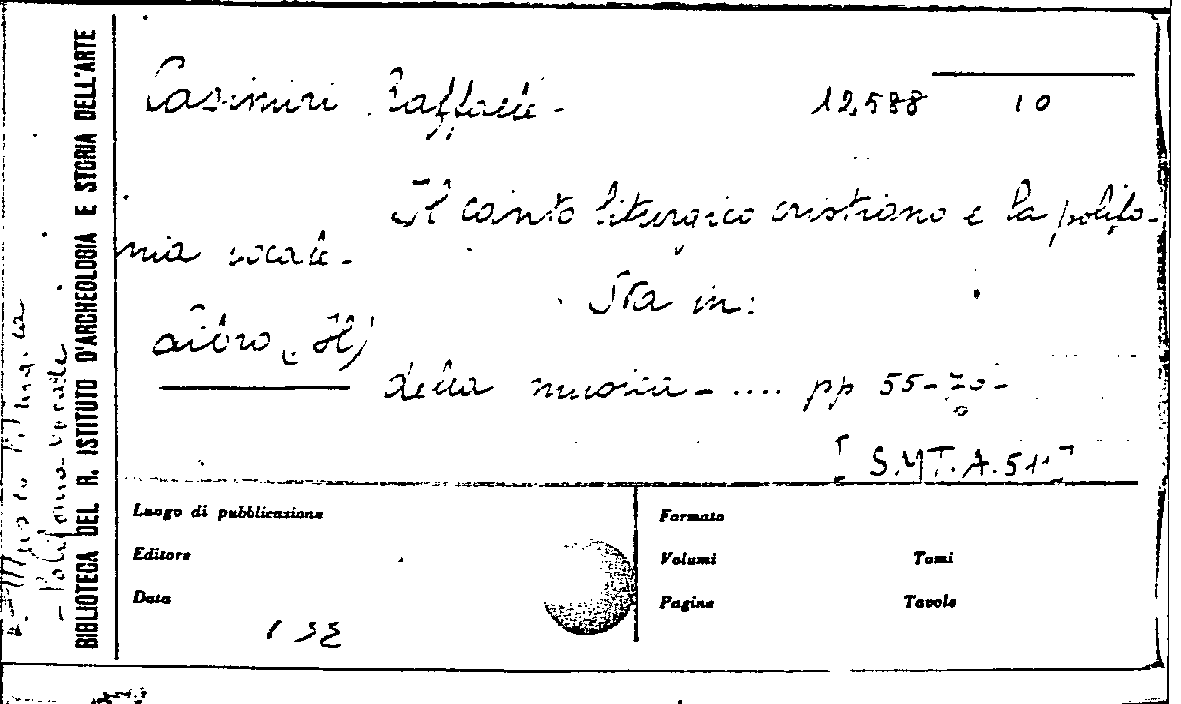 Casimiri Raffaele - 12588 10
Il canto liturgico cristiano e la polifo-
nia vocale -
Sta in:
Libro (Il)
della musica - .... pp 55-70 -
[S.MT.A.511]
Luogo di pubblicazione
Editore
Data
Formato
Volumi Tomi
Pagine Tavole
BIBLIOTECA DEL R. ISTITUTO D'ARCHEOLOGIA E STORIA DELL'ARTE
- Polifonia vocale